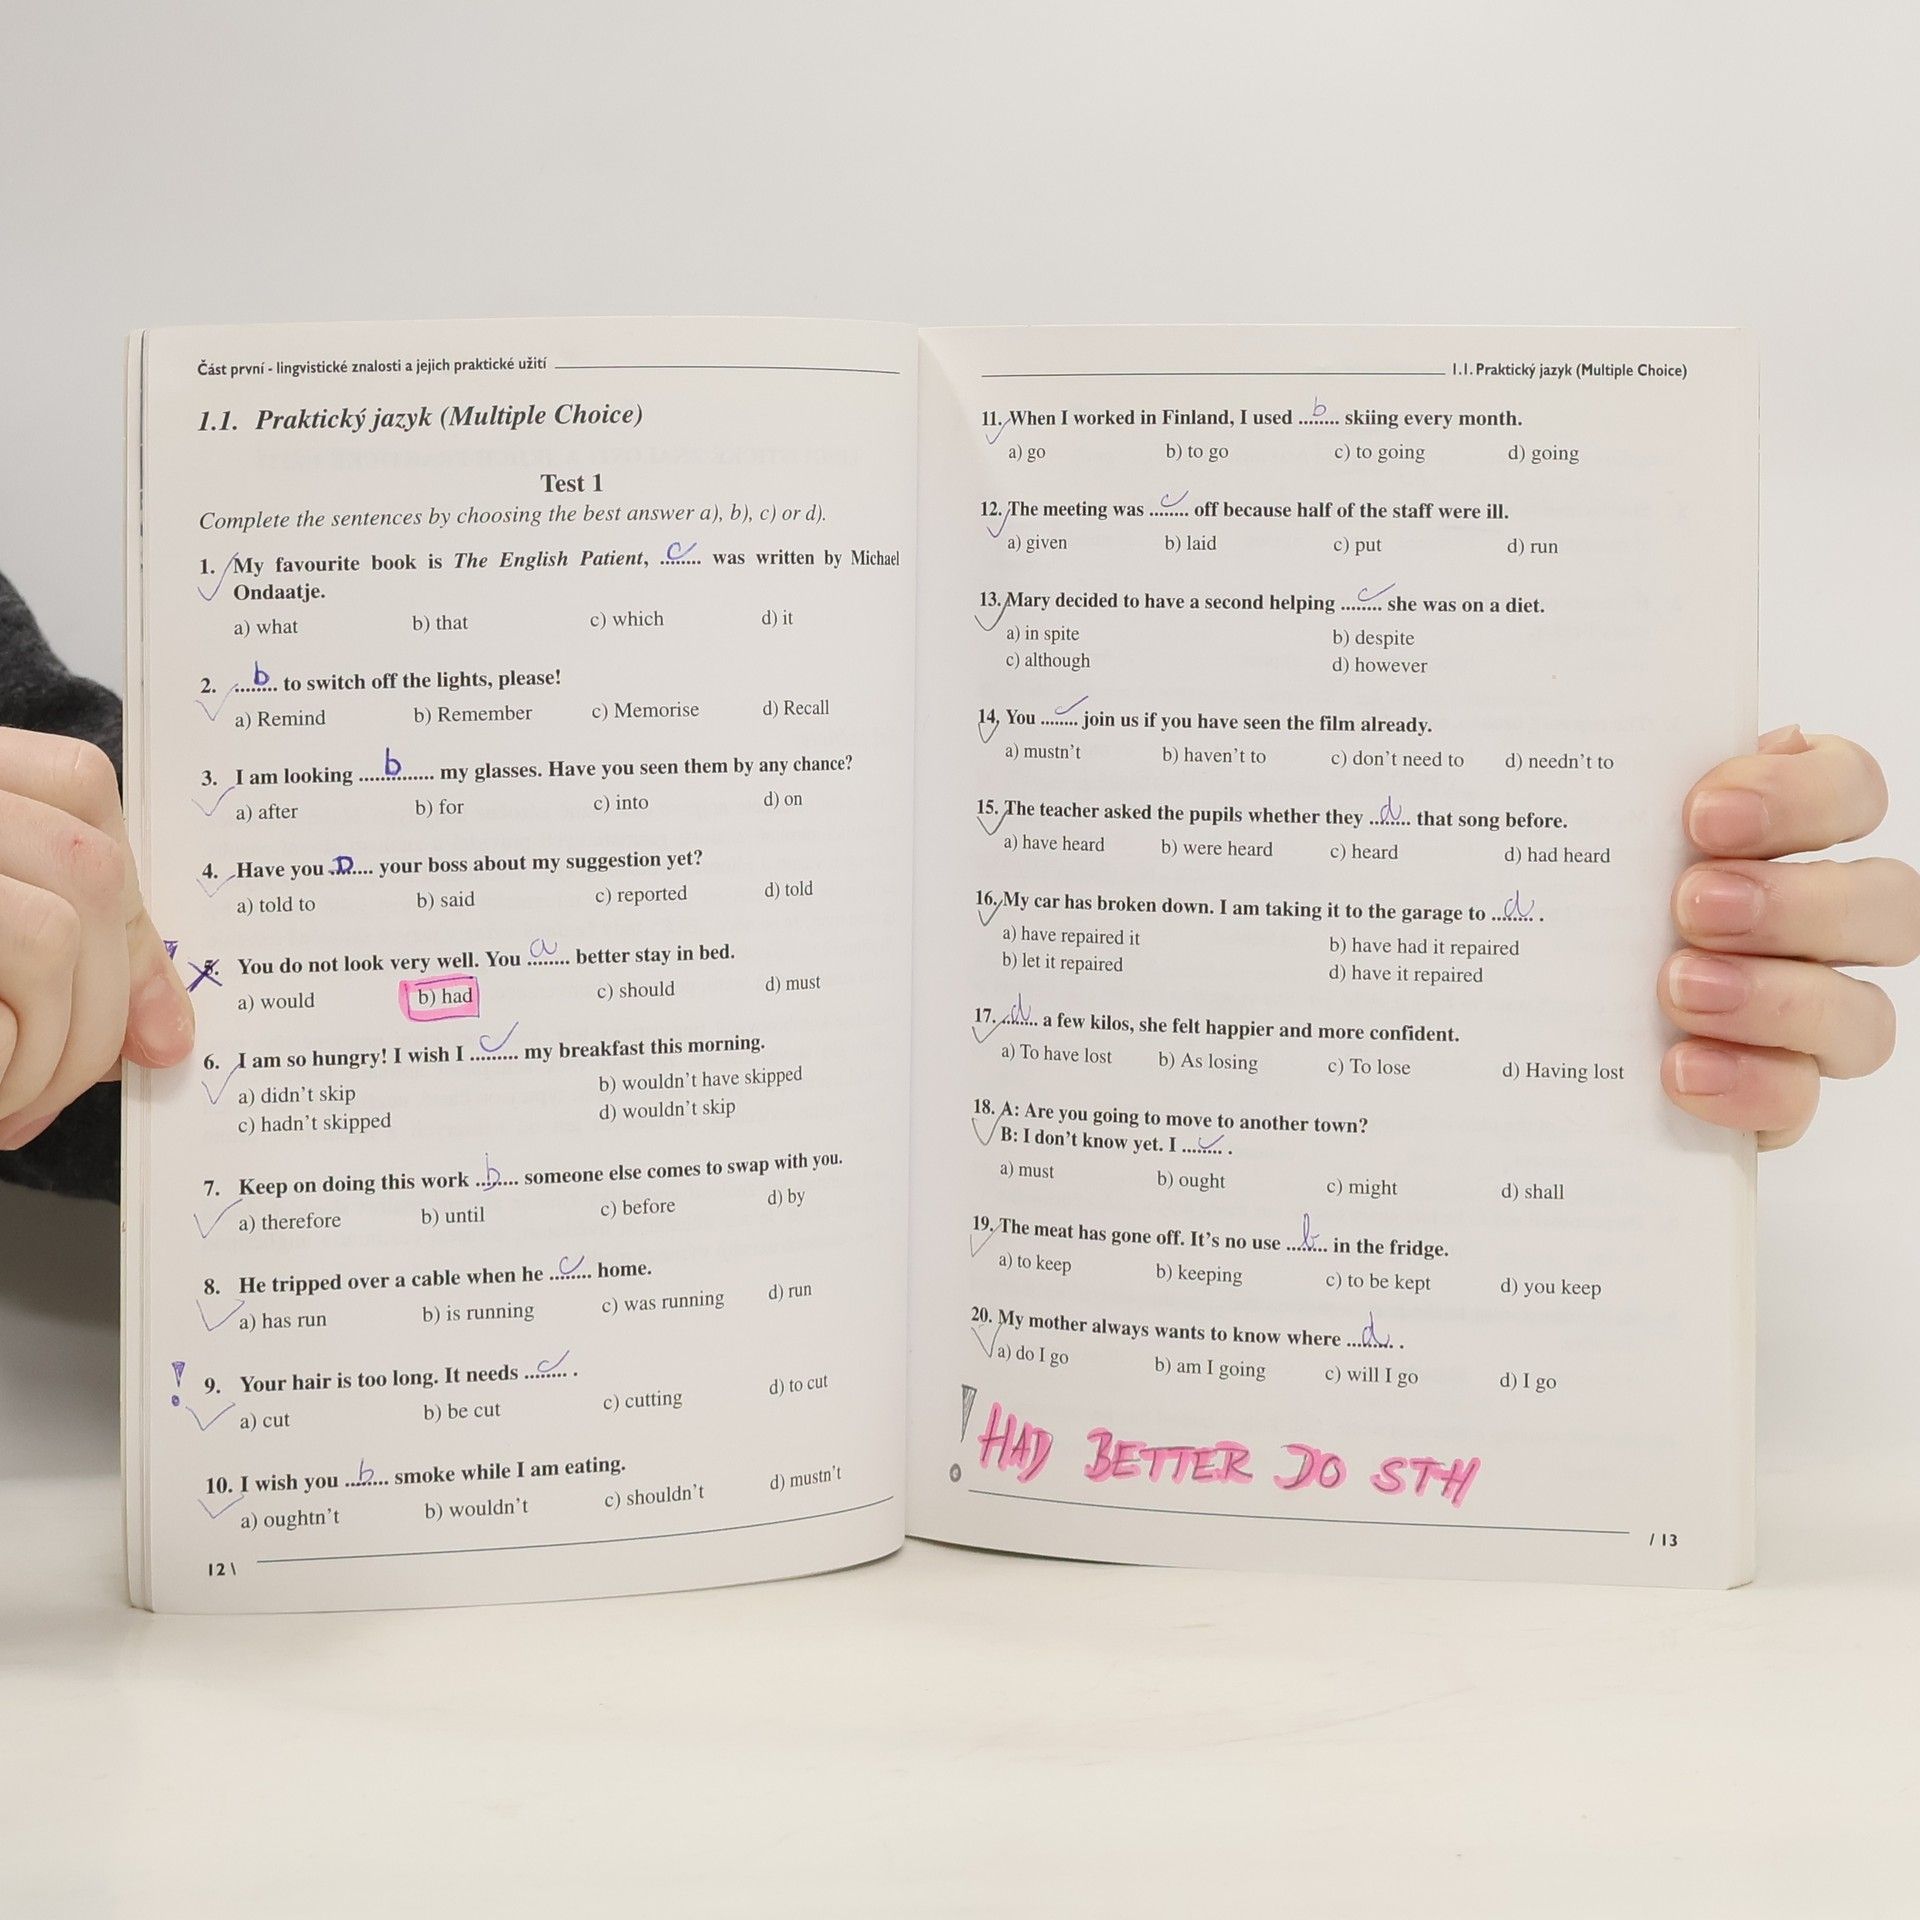 Část první - lingvistické znalosti a jejich praktické užití
1.1. Praktický jazyk (Multiple Choice)
Test 1
Complete the sentences by choosing the best answer a), b), c) or d).
1. My favourite book is The English Patient, ...c... was written by Michael
Ondaatje.
a) what b) that c) which d) it
2. ...b... to switch off the lights, please!
a) Remind b) Remember c) Memorise d) Recall
3. I am looking ...b... my glasses. Have you seen them by any chance?
a) after b) for c) into d) on
4. Have you ...D... your boss about my suggestion yet?
a) told to b) said c) reported d) told
5. You do not look very well. You ...a... better stay in bed.
a) would b) had c) should d) must
6. I am so hungry! I wish I ...c... my breakfast this morning.
a) didn't skip b) wouldn't have skipped
c) hadn't skipped d) wouldn't skip
7. Keep on doing this work ...b... someone else comes to swap with you.
a) therefore b) until c) before d) by
8. He tripped over a cable when he ...c... home.
a) has run b) is running c) was running d) run
! 9. Your hair is too long. It needs ...c... .
a) cut b) be cut c) cutting d) to cut
10. I wish you ...b... smoke while I am eating.
a) oughtn't b) wouldn't c) shouldn't d) mustn't
12 \
1.1. Praktický jazyk (Multiple Choice)
11. When I worked in Finland, I used ...b... skiing every month.
a) go b) to go c) to going d) going
12. The meeting was ...c... off because half of the staff were ill.
a) given b) laid c) put d) run
13. Mary decided to have a second helping ...c... she was on a diet.
a) in spite b) despite
c) although d) however
14, You ...c... join us if you have seen the film already.
a) mustn't b) haven't to c) don't need to d) needn't to
15. The teacher asked the pupils whether they ...d... that song before.
a) have heard b) were heard c) heard d) had heard
16. My car has broken down. I am taking it to the garage to ...d... .
a) have repaired it b) have had it repaired
b) let it repaired d) have it repaired
17. ...d... a few kilos, she felt happier and more confident.
a) To have lost b) As losing c) To lose d) Having lost
18. A: Are you going to move to another town?
B: I don't know yet. I ...c... .
a) must b) ought c) might d) shall
19. The meat has gone off. It's no use ...b... in the fridge.
a) to keep b) keeping c) to be kept d) you keep
20. My mother always wants to know where ...d... .
a) do I go b) am I going c) will I go d) I go
! HAD BETTER DO STH
/ 13